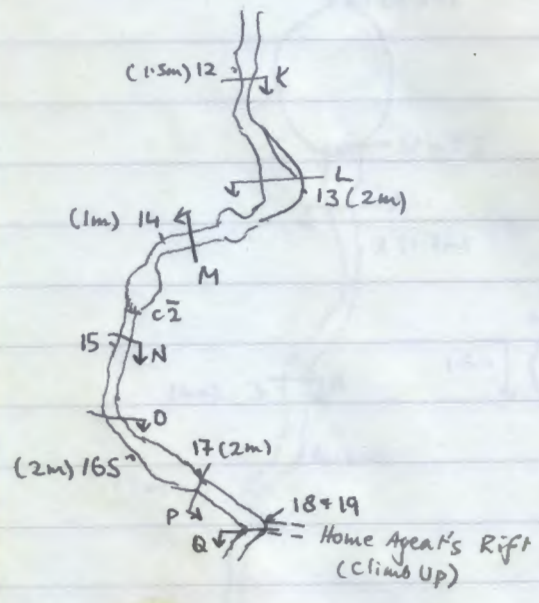 (1.5m) 12 K
L
13 (2m)
(1m) 14
M
c2̄
15 N
O
17 (2m)
(2m) 16
18 & 19
P
Q
Home Agent's Rift
(Climb Up)